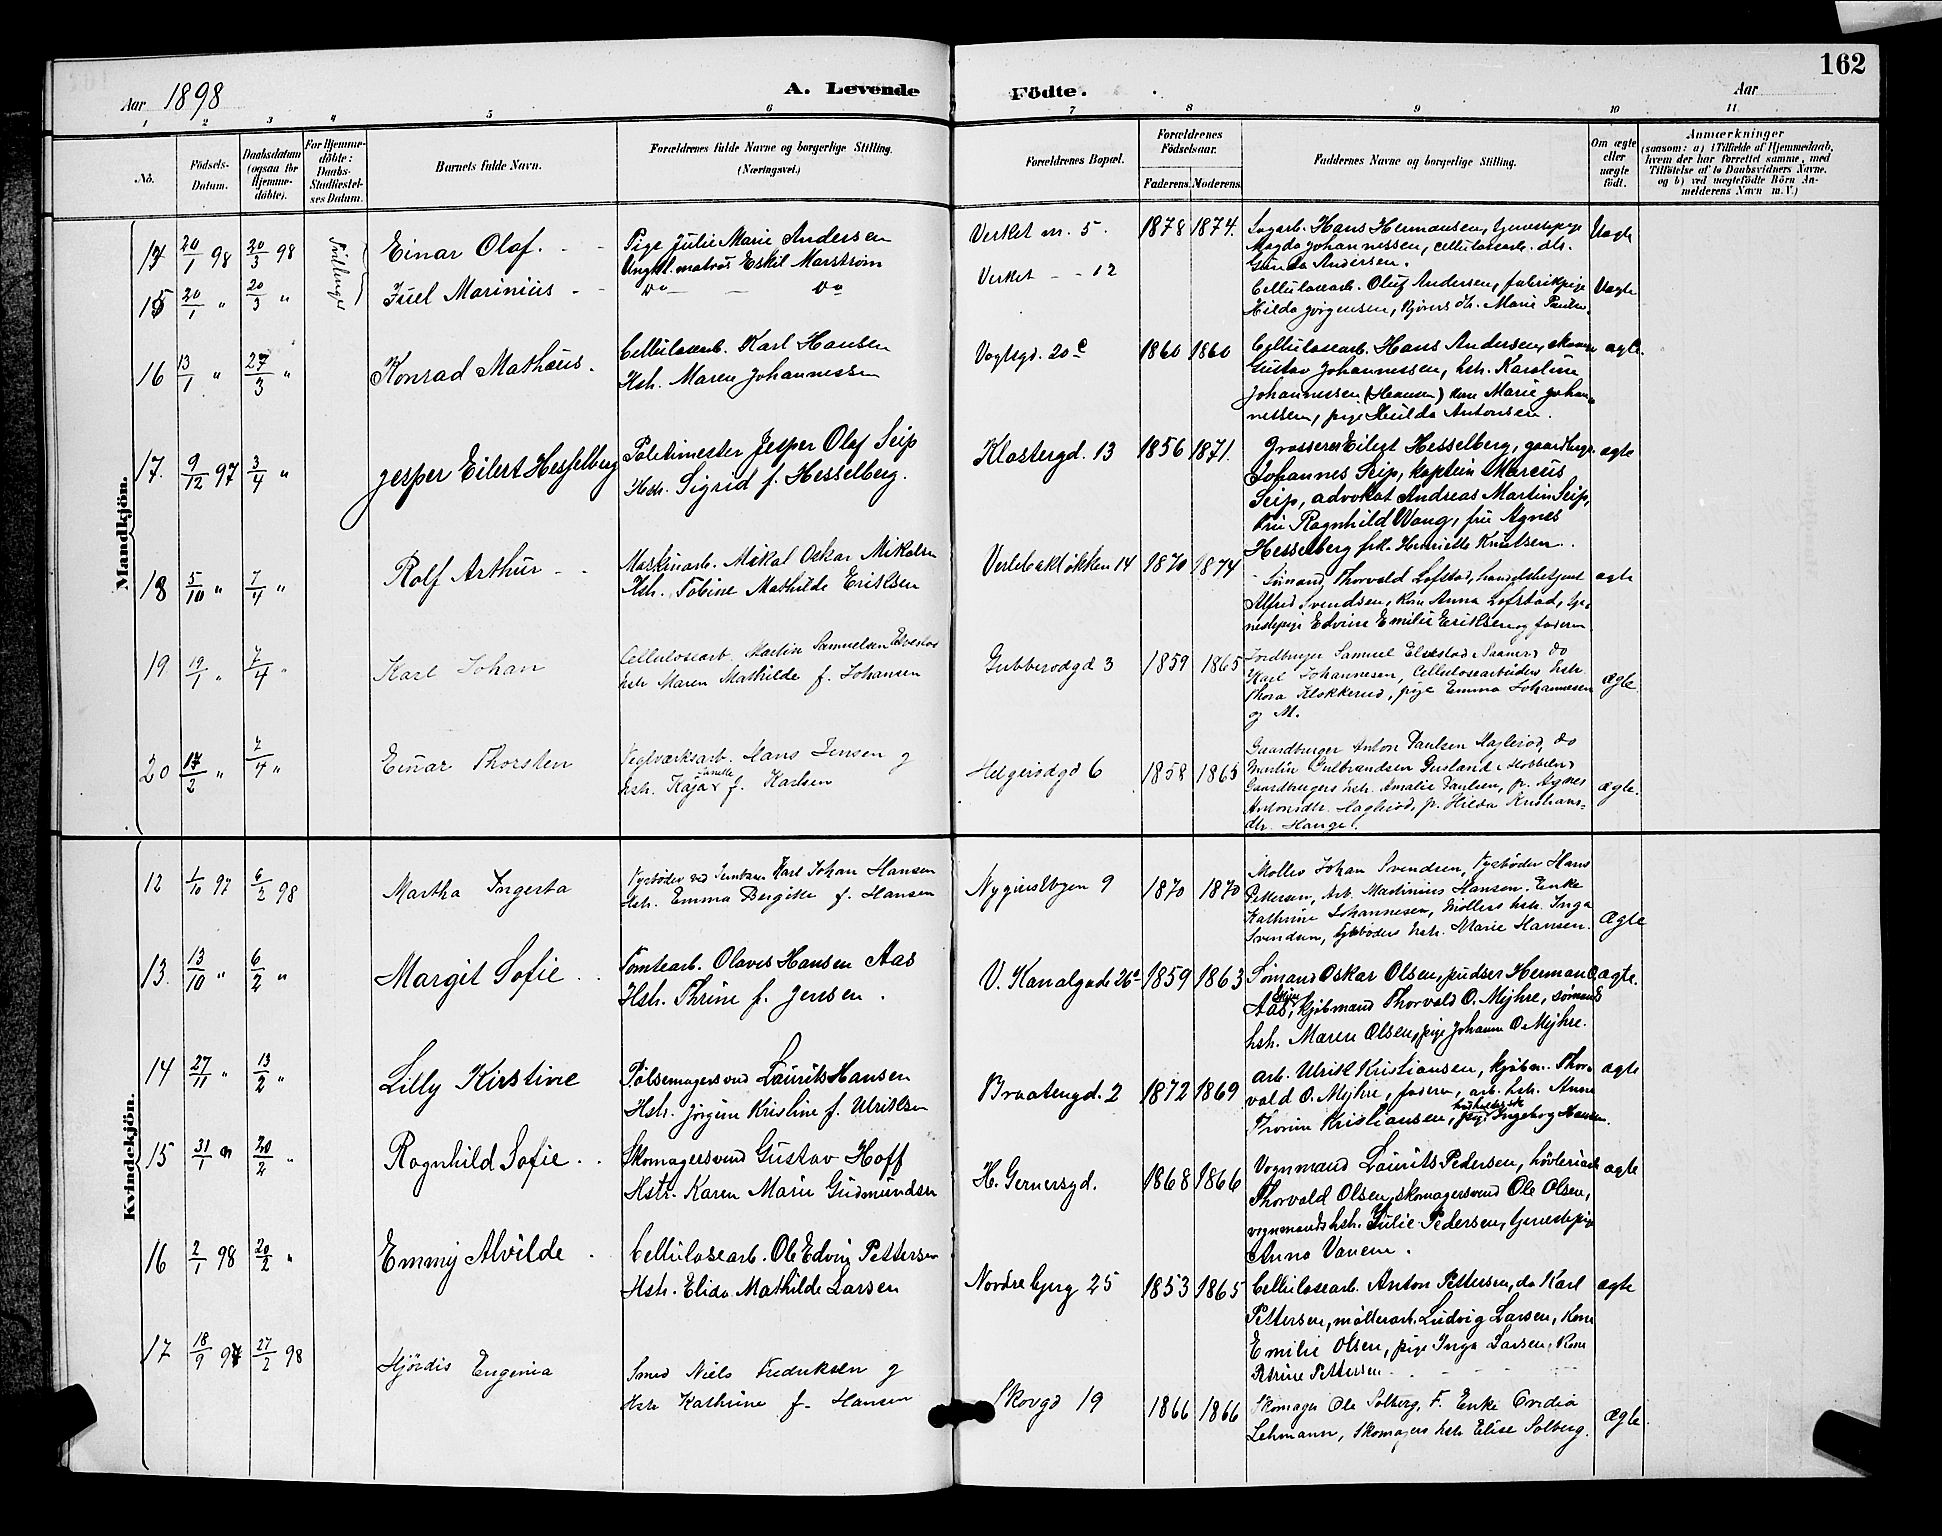 162
Aar 1898
A. Levende Födte.
Aar
1 2 3 4 5 6 7 8 9 10 11
No.
Födsels-Datum.
Daabsdatum (ogsaa for Hjemme-döbte).
For Hjemme-döbte: Daabs-Stadfæstelses Datum.
Barnets fulde Navn.
Forældrenes fulde Navne og borgerlige Stilling. (Næringsvei.)
Forældrenes Bopæl.
Forældrenes Födselsaar.
Faderens. Moderens.
Faddernes Navne og borgerlige Stilling.
Om ægte eller uægte født.
Anmærkninger
(saasom: a) i Tilfælde af Hjemmedaab, hvem der har forrettet samme, med Tilföielse af to Daabsvidners Navne, og b) ved uægtefödte Börn Anmelderens Navn m. V.)
Mandkjön.
14 20/1 98 20/3 98 Tvillinger Einar Olaf. Pige Julie Marie Andersen
Ungkl. matros Eskil Marström
Verket m. 5. 1878 1874 Sagarb. Hans Hermansen, tjenestepige
Magda Johannessen, cellulosearb. dtr.
Gunda Andersen. Uægte
15 20/1 " 20/3 " Juel Marinius - Do - Do
Verket - - 12 Cellulosearb. Oluf Andersen, fabrikpige
Hilda Jørgensen, Marie Paulsen Uægte
16 13/1 " 27/3 " Konrad Mathæus. Cellulosearb. Karl Hansen
Hst. Maren Johannessen
Vogtsgd. 20 c 1860 1860 Cellulosearb. Hans Andersen, skom
Gustav Johannessen, hst. Karoline
Johannessen (Hansen) kone Marie Johan-
nessen, pige Hulda Antonsen. ægte.
17. 9/12 97 3/4 " Jesper Eilert Hesselberg Politimester Jesper Olaf Seip
Hstr. Sigrid f. Hesselberg.
Klostergd. 13 1856 1871. Grosserer Eilert Hesselberg, gaardbruger
Johannes Seip, kaptein Marcus
Seip, advokat Andreas Martin Seip,
Frue Ragnhild Wang, frue Agnes
Hesselberg frk. Henriette Knutsen. ægte
18 5/10 " 7/4 " Rolf Arthur - - Maskinarb. Mikal Oskar Mikalsen
Hst. Tobine Mathilde Eriksen
Verlebakløkken 14 1870 1874 Sømand Thorvald Lofstad, handelsbetjent
Alfred Svendsen, Kone Anna Lofstad, tje-
nestepige Edvine Emilie Eriksen og faderen ægte
19 19/1 " 7/4 " Karl Johan Cellulosearb. Martin Samuelsen Elvestad
hstr Maren Mathilde f. Johansen
Gubberodgd 3 1859 1865 Jordbruger Samuel Elvestad i Saaner, do
Karl Johannesen, Cellulosearbeiders hstr.
Thora Klokkerud, pige Emma Johannesen
og M. ægte
20 14/2 " 7/4 " Einar Thorsten Teglværksarb. Hans Jensen g
hstr. Kaja f. Karlsen
Helgerødgd 6 1858 1865 Gaardbruger Anton Paulsen Haglerød, do
Martin Gulbrandsen Grusland i Hobbøl,
Gaardbrugers hstr. Amalie Paulsen, p. Agnes
Antonsdtr. Haglerød, p. Hilda Kristians-
dtr. Hauge. ægte.
Kvindekjön.
12 1/10 97 6/2 98 Martha Ingerta Karl Johan Hansen
Hstr. Emma Bergitte f. Hansen
9 1870 1870 Møller Johan Svendsen, Fyrbøder Hans
Pettersen, Arb. Martinius Hansen. Enke
Kathrine Johannesen, Møllers hstr. Inga
Svendsen, Fyrbøders hstr. Marie Hansen. Ægte
13. 13/10 " 6/2 " Margit Sofie . . Tomtearb. Olaves Hansen Aas
Hstr. Thrine f. Jensen.
V. Kanalgade 26 a 1859 1863 Sømand Oskar Olsen, pudser Herman O.
Aas, Kjøbmand Thorvald O. Myhre, sømands
hst. Maren Olsen, pige Johanne O. Myhre. ægte.
14 27/11 " 13/2 " Lilly Kirstine Pølsemagersvend Laurits Hansen
Hstr. Jørgine Kristine f. Ulriksen
Braatengd. 2 1872 1869 Arb. Ulrik Kristiansen, kjøbm. Thor-
vald O. Myhre, faderen, arb. hstr. Anne
Thorine Kristiansen, Ingeborg Hansen. ægte
15 31/1 20/2 " Ragnhild Sofie . . Skomagersvend Gustav Hoff
Hstr. Karen Marie Gudmundsen
H. Gernersgd. 1868 1866 Vognmand Laurits Pedersen, høvleriarb
Thorvald Olsen, skomagersvend Ole Olsen,
vognmands hst. Julie Pedersen, tjenestepige
Anna Vanem. ægte
16 2/1 98 20/2 " Emmy Alvilde . Cellulosearb. Ole Edvin Pettersen
Hstr. Elida Mathilde Larsen
Nordre bjerg 25 1853 1865 Cellulosearb. Anton Pettersen, do Karl
Pettersen, møllerarb. Ludvig Larsen, Kone
Emilie Olsen, pige Inga Larsen, Kone
Petrine Pettersen. ægte
17 18/9 97 27/2 98 Hjördis Eugenia Smed Niels Fredriksen g
Hstr Kathrine f. Hansen
Skovgd 19 1866 1866 Skomager Ole Solberg, F. Enke Ovidia
Lehmann, Skomagers hstr Elise Solberg. Ægte